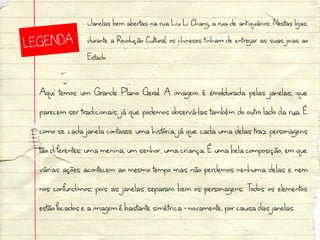 LEGENDA
Janelas bem abertas na rua Liu Li Chang, a rua de antiquários. Nestas lojas,
durante a Revolução Cultural, os chineses tinham de entregar as suas joias ao
Estado.
Aqui temos um Grande Plano Geral. A imagem é emoldurada pelas janelas, que
parecem ser tradicionais, já que podemos observá-las também do outro lado da rua. É
como se cada janela contasse uma história, já que cada uma delas traz personagens
tão diferentes: uma menina, um senhor, uma criança. É uma bela composição, em que
várias ações acontecem ao mesmo tempo mas não perdemos nenhuma delas e nem
nos confundimos, pois as janelas separam bem os personagens. Todos os elementos
estão focados e a imagem é bastante simétrica – novamente, por causa das janelas.